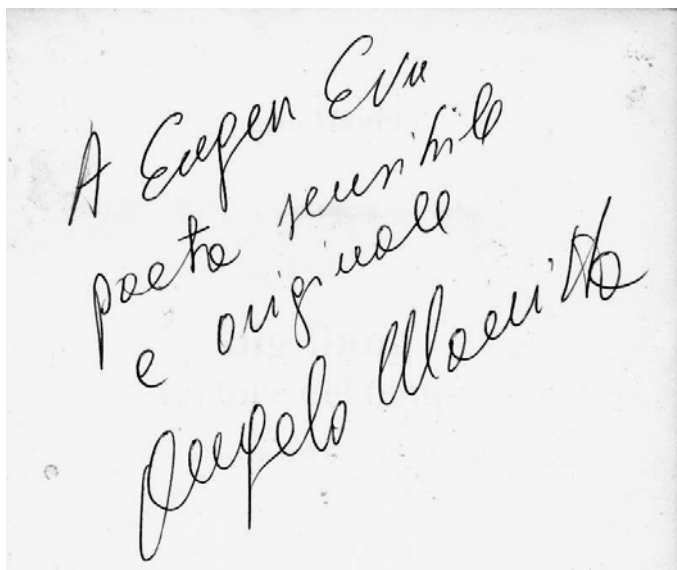 A Eugen Evu
poeta sensibile
e originale
Angelo Manitta